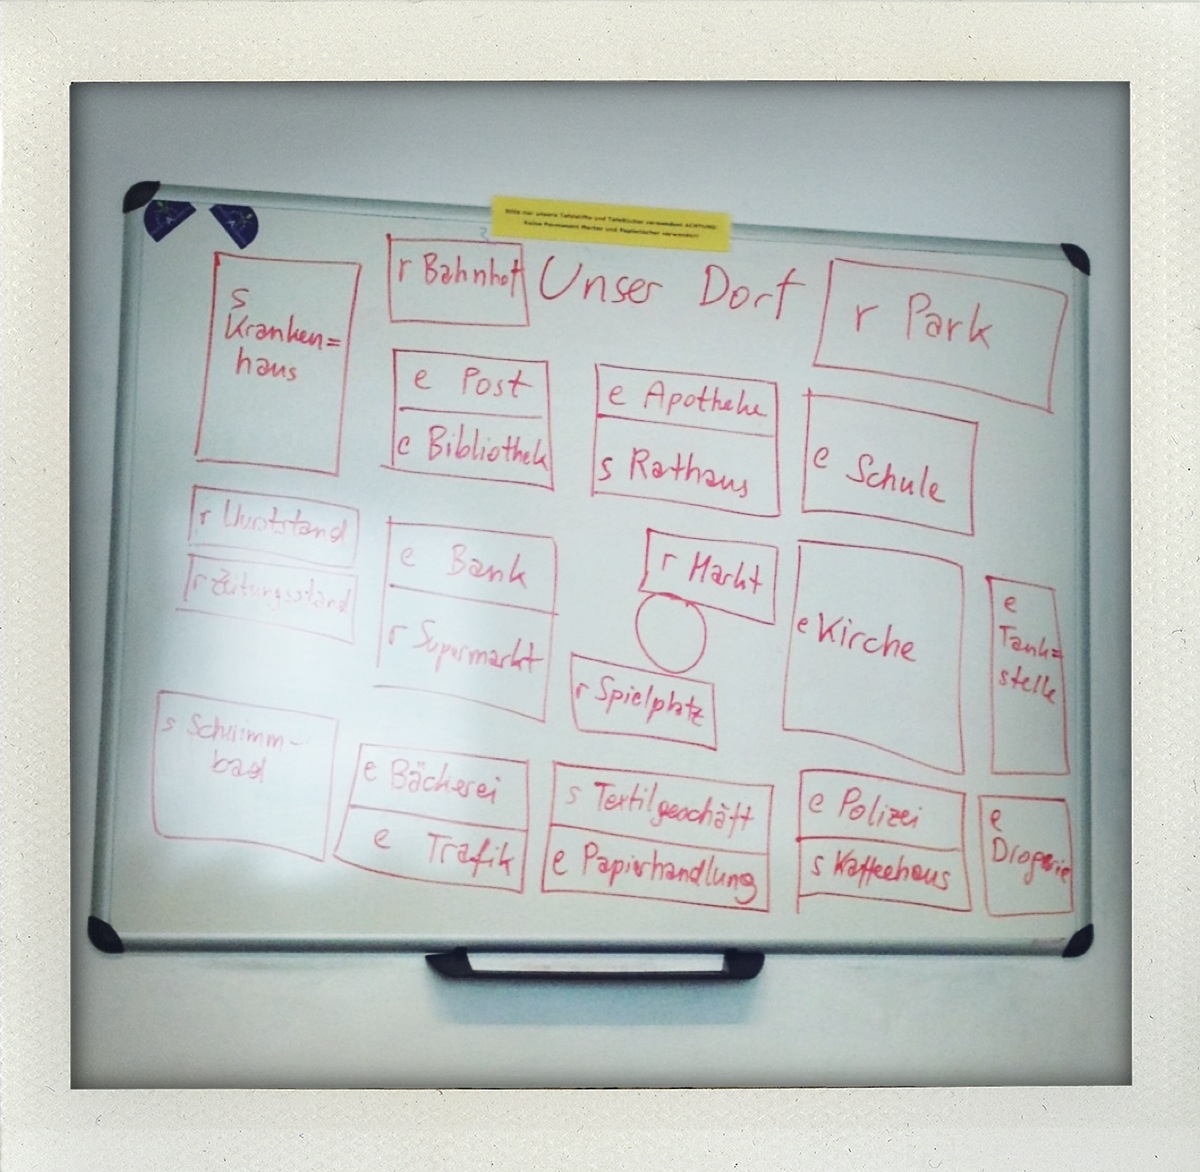 Bitte nur unsere Tafelstifte und Tafeltücher verwenden! ACHTUNG:
Keine Permanent Marker und Papiertücher verwenden!
r Bahnhof
Unser Dorf
r Park
s
Kranken=
haus
e Post
e Bibliothek
e Apotheke
s Rathaus
e Schule
r Wurststand
r Zeitungsstand
e Bank
r Supermarkt
r Markt
r Spielplatz
e Kirche
e
Tank=
stelle
s Schwimm-
bad
e Bäckerei
e Trafik
s Textilgeschäft
e Papierhandlung
e Polizei
s Kaffeehaus
e
Drogerie